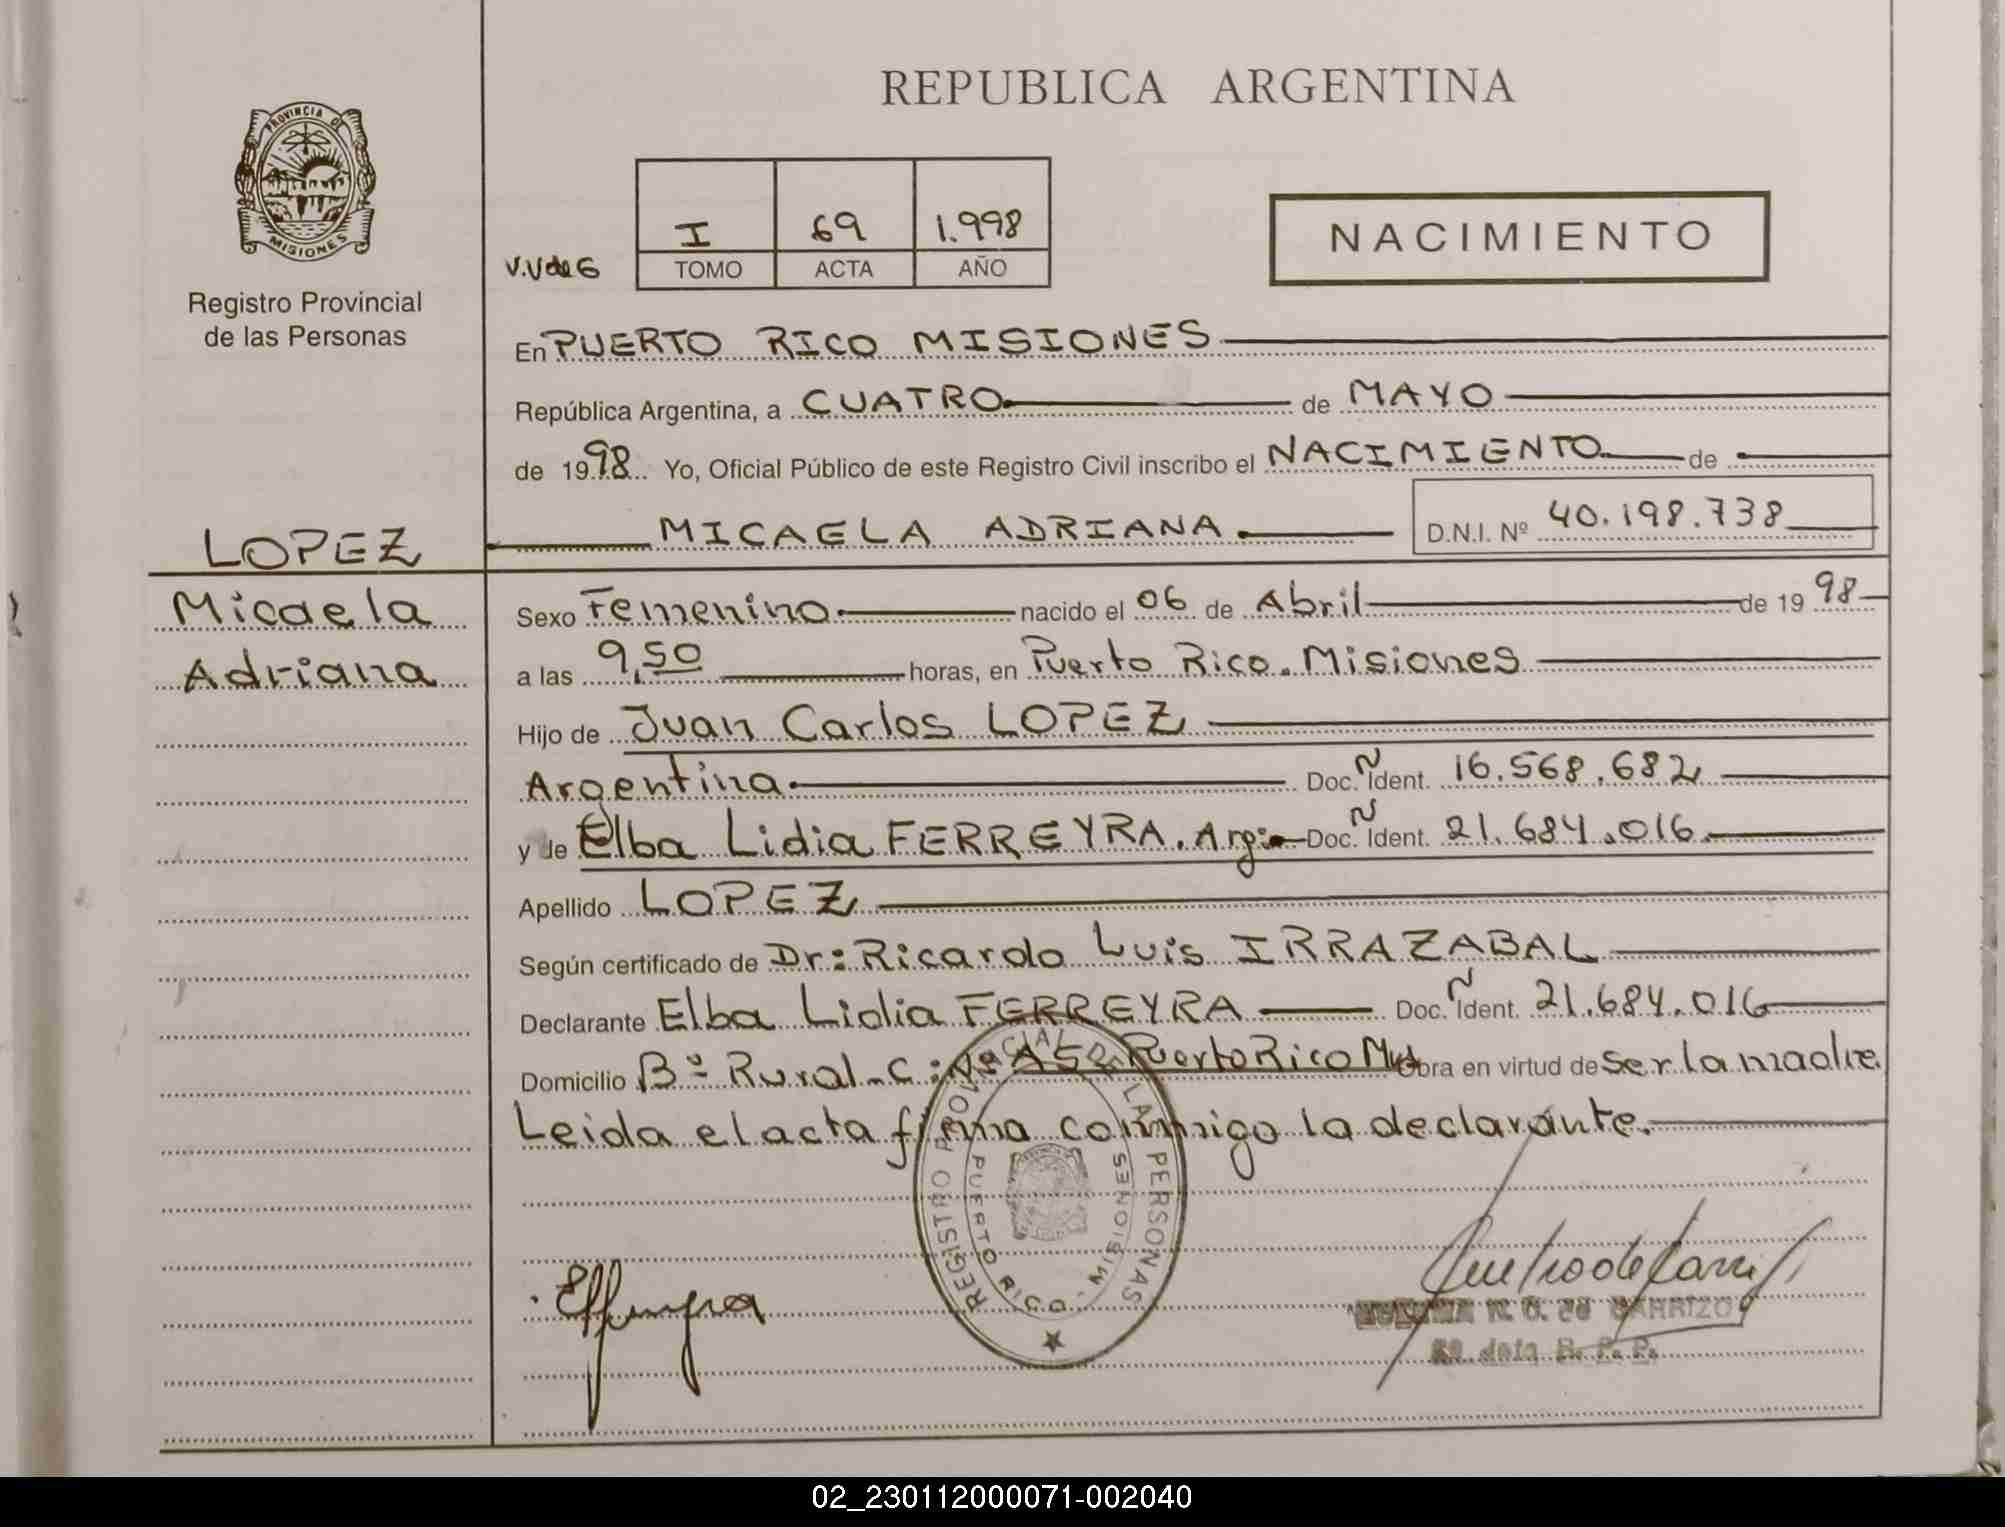 REPUBLICA ARGENTINA
PROVINCIA DE
MISIONES
Registro Provincial
de las Personas
V.V de G
I 69 1.998
TOMO ACTA AÑO
NACIMIENTO
En PUERTO RICO MISIONES
República Argentina, a CUATRO de MAYO
de 1998 Yo, Oficial Público de este Registro Civil inscribo el NACIMIENTO de
MICAELA ADRIANA D.N.I. Nº 40.198.738
LOPEZ
Micaela
Adriana
Sexo Femenino nacido el 06 de Abril de 1998
a las 9,50 horas, en Puerto Rico. Misiones
Hijo de Juan Carlos LOPEZ
Argentina Doc. Ñ Ident. 16.568.682
y de Elba Lidia FERREYRA. Arg: Doc. Ñ Ident. 21.684.016
Apellido LOPEZ
Según certificado de Dr: Ricardo Luis IRRAZABAL
Declarante Elba Lidia FERREYRA Doc. Ñ Ident. 21.684.016
Domicilio Bº Rural-C: Nº A5 Puerto Rico Mis Obra en virtud de ser la madre
Leida el acta firma conmigo la declarante.
REGISTRO PROVINCIAL DE LAS PERSONAS
PUERTO RICO - MISIONES
CARRIZO
R. P. P.
02_230112000071-002040